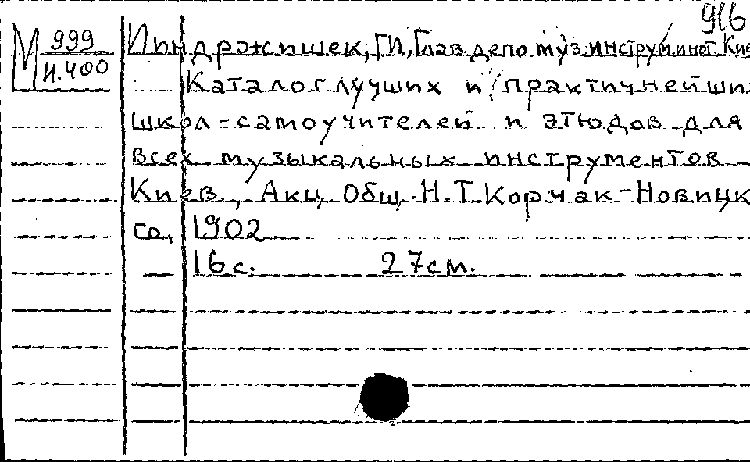 916
М 999
И.400
Йиндржишек, Г.И, Глав депо муз инструм инот. Кие
Каталог лучших и практичнейши
школ-самоучителей и этюдов для
всех музыкальных инструментов
Киев, Акц. Общ. Н.Т. Корчак-Новицк
го, 1902
16 с. 27 см.